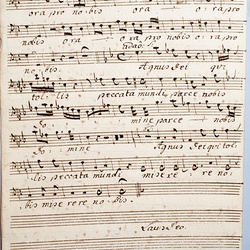 ora pro no-bis ora - - o-ra pro
nobis ora - - ora pro nobis o-ra pro
no-bis. Agnus Dei qui
tol-lis peccata mundi, parce nobis
Do-mine parce - nobis
Do-mine Agnus Dei qui tol
lis peccata mundi misere-re no
bis mise rere no-bis.
Laus Deo.